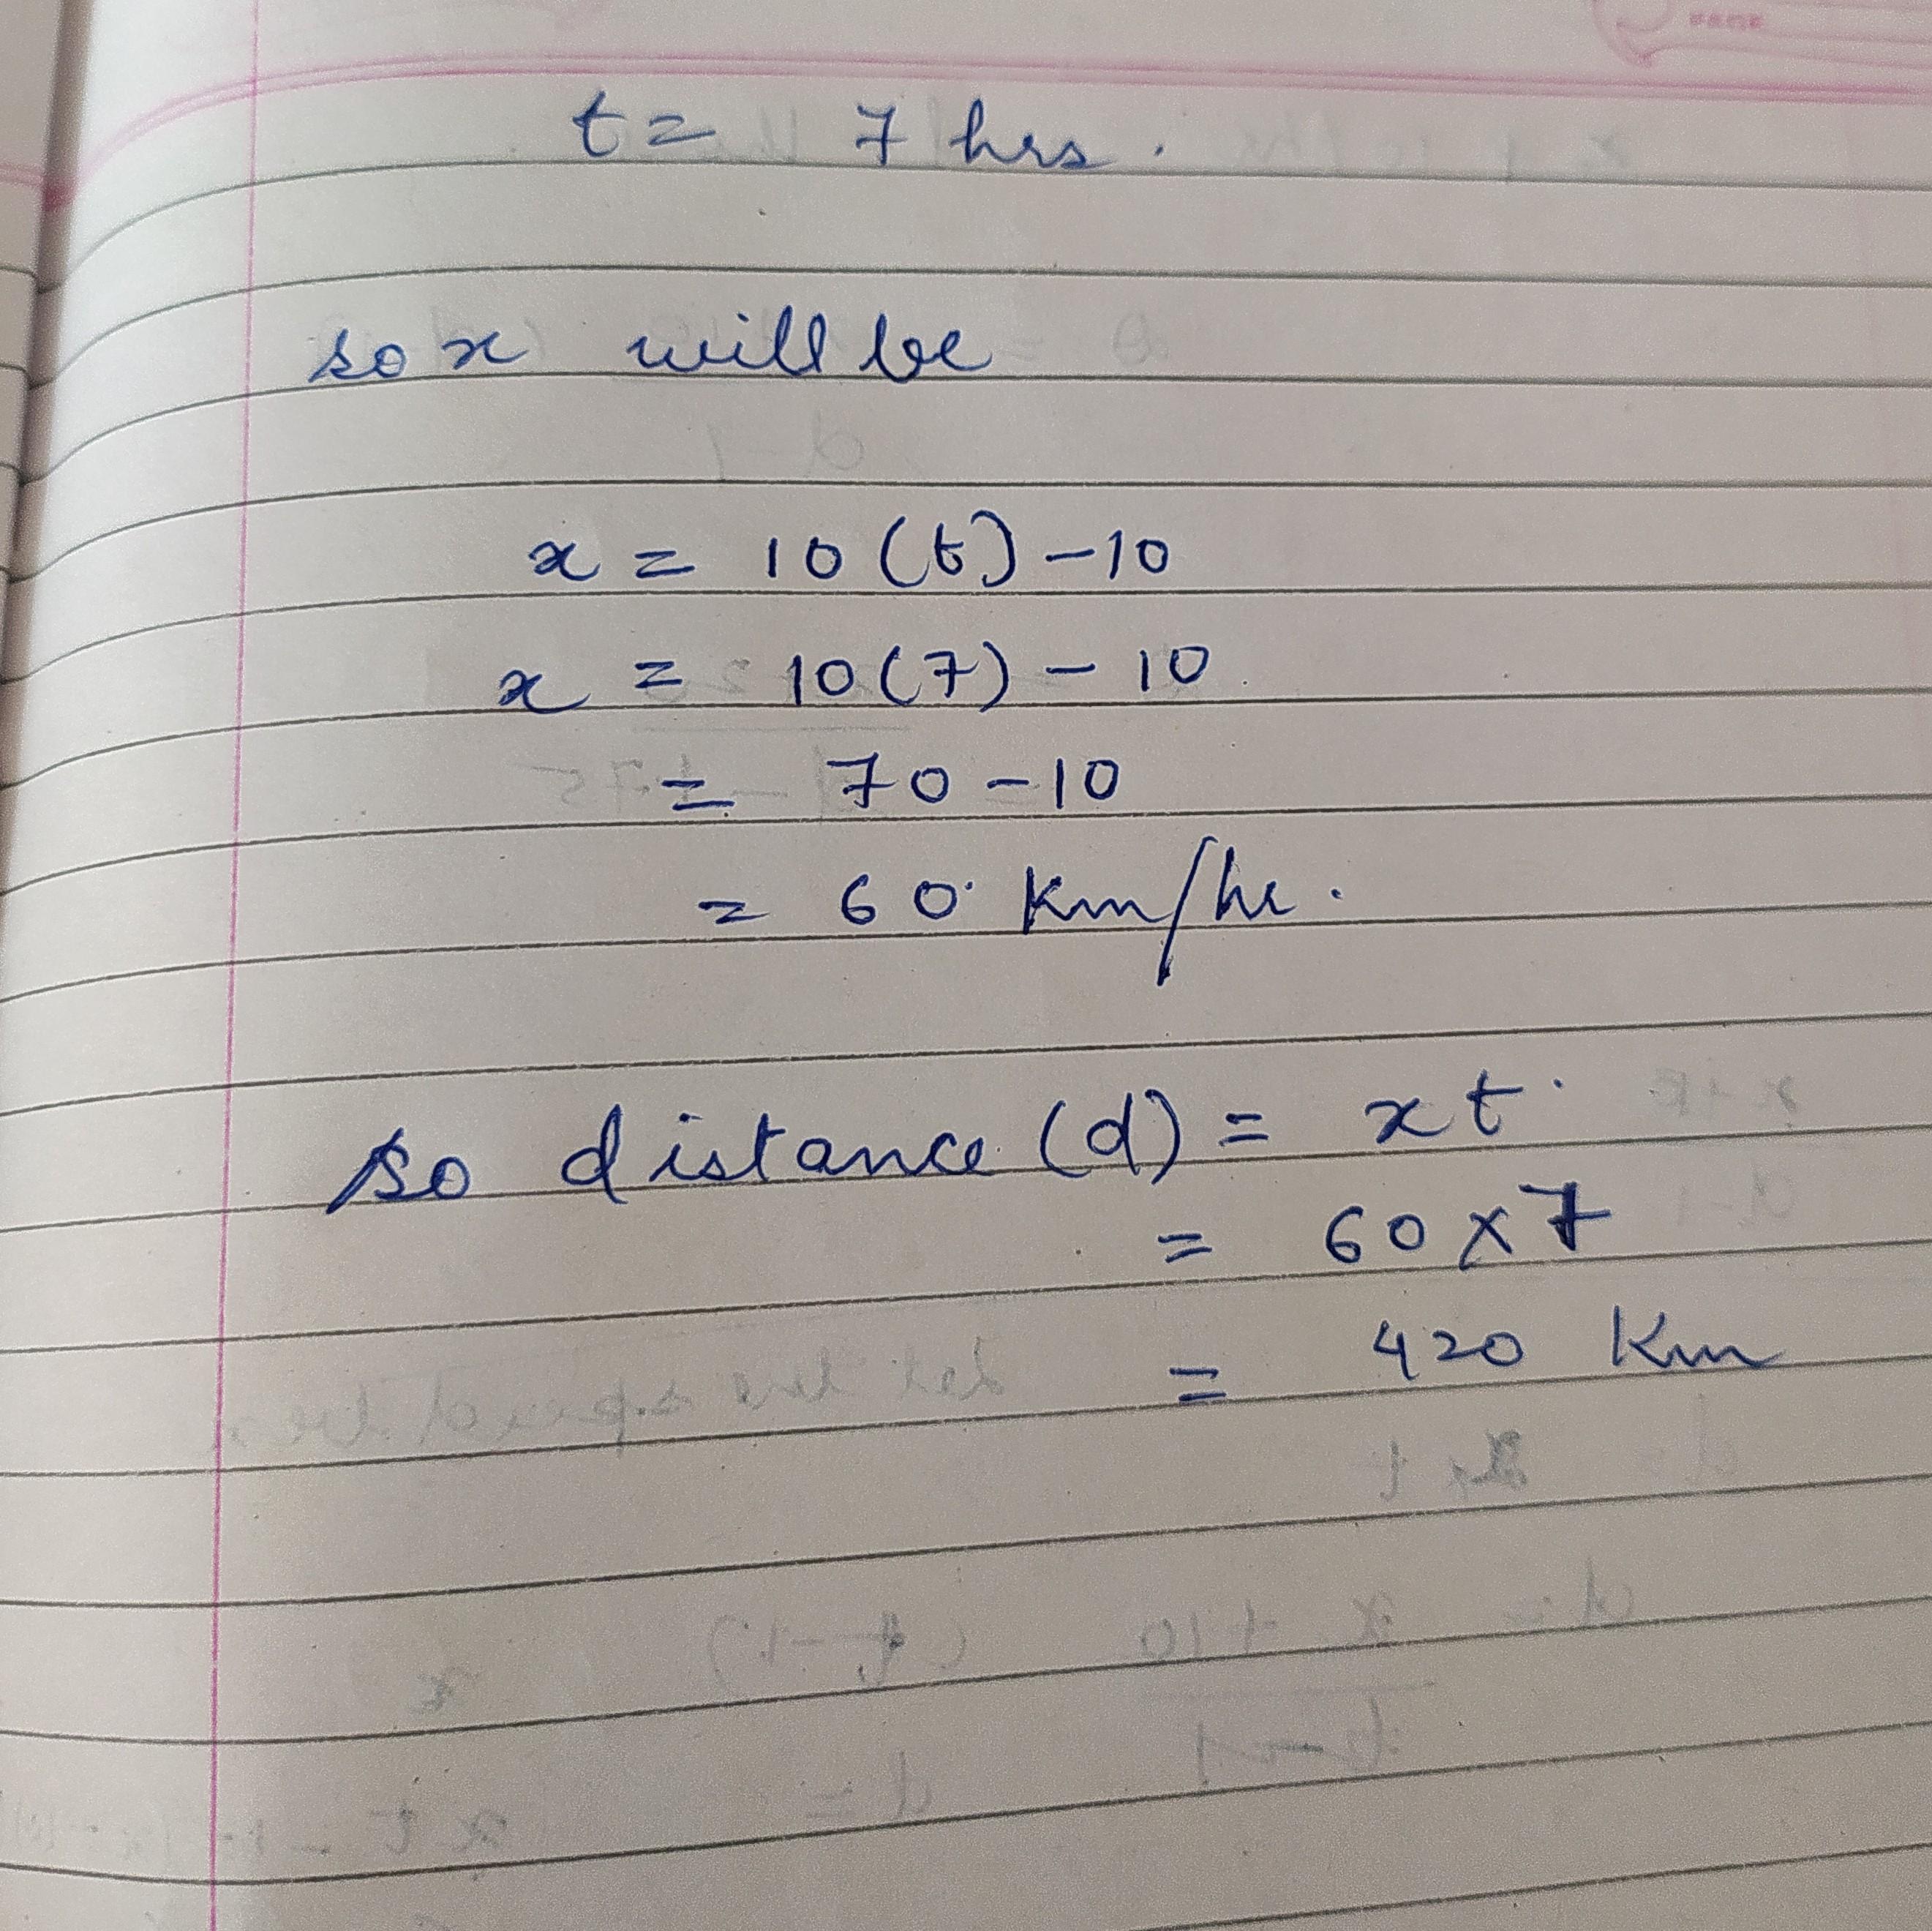 t = 7 hrs.
so x will be
x = 10 (t) - 10
x = 10 (7) - 10
= 70 - 10
= 60 Km/hr.
so distance (d) = xt
= 60 x 7
= 420 Km